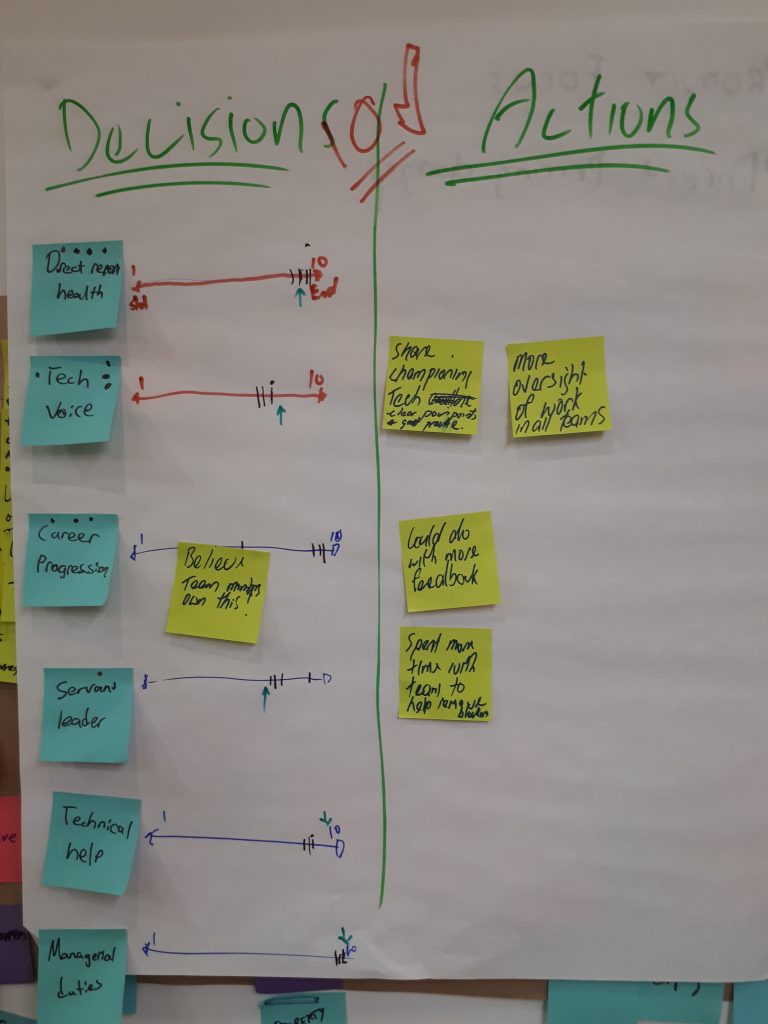 Decisions
Actions
Direct report
health
1
10
Std
End
Tech
Voice
1
10
Share
championing
Tech
clear pain points
& good practice.
More
oversight
of work
in all teams
Career
Progression
1
10
Believe
Team members
own this!
Could do
with more
feedback
Servant
leader
Spent more
time with
team to
help remove
blockers
Technical
help
1
10
Managerial
duties
1
10